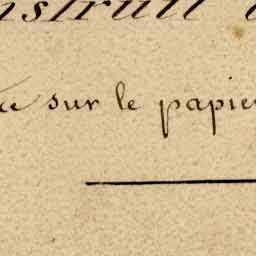 nstruit
sur le papier